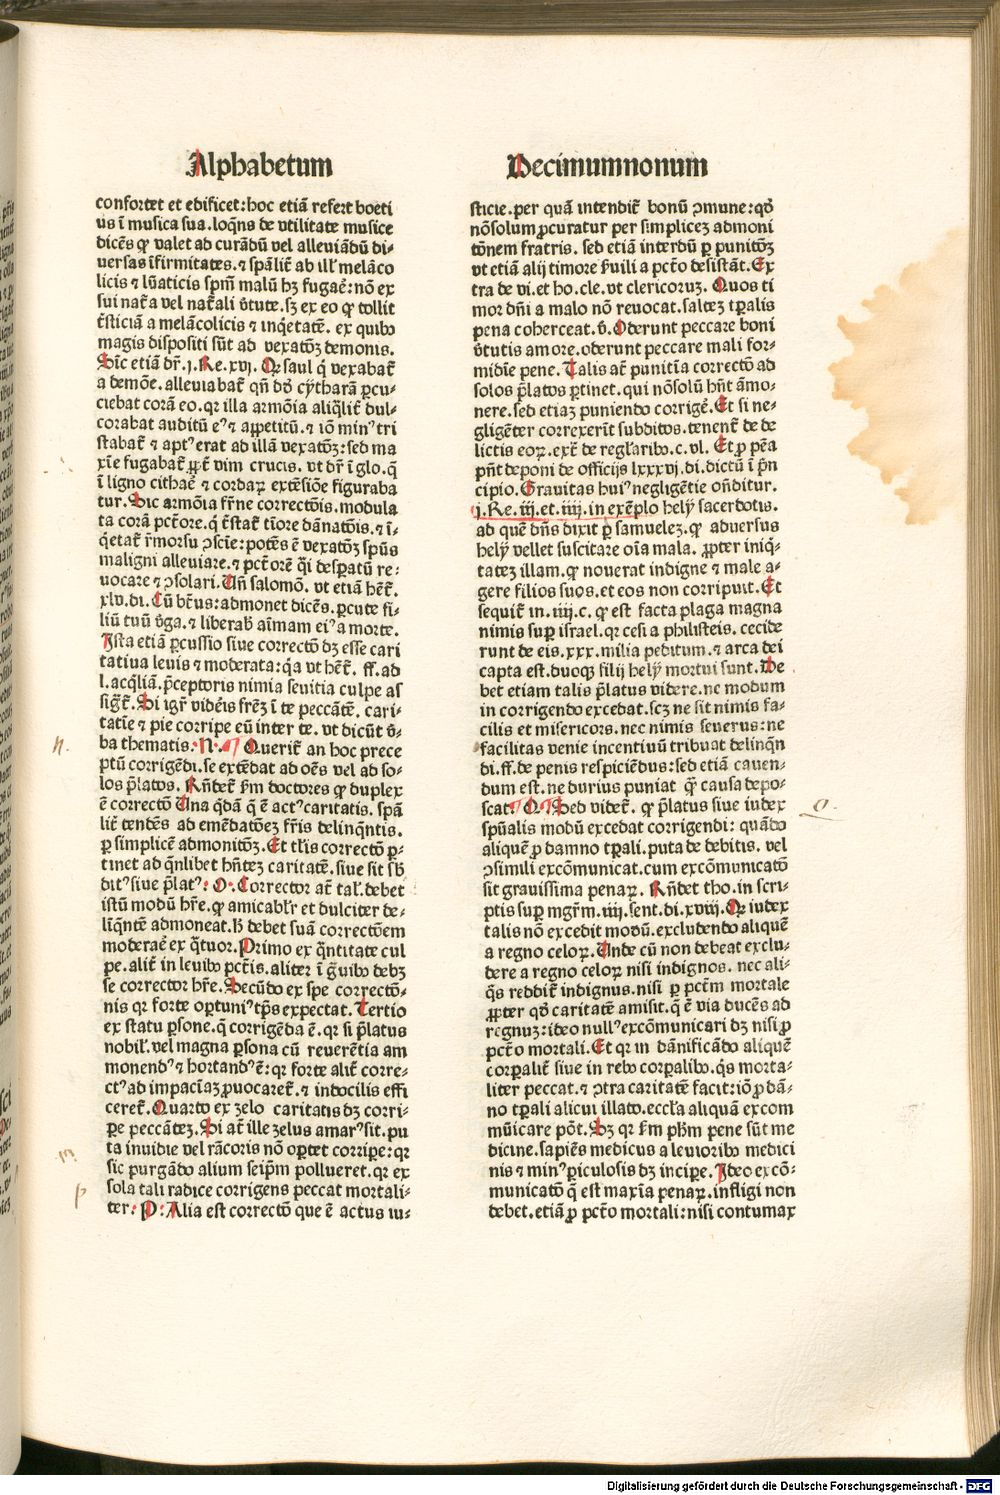 Alphabetum
confortet et edificet: hoc etiã refert boeti
us ĩ musica sua. loqñs de vtilitate musice
dicẽs ꝙ valet ad curãdũ vel alleuiãdũ di-
uersas ĩfirmitates. ⁊ spãlit̃ ad ill' melãco
licis ⁊ lũaticis spm̃ malũ hꝫ fugaẽ: nõ ex
sui nat̃a vel nat̃ali v̓tute. sꝫ ex eo ꝙ tollit
t̓sticiã a melãcolicis ⁊ inq̓etatẽ. ex quibꝰ
magis dispositi sũt ad vexatõꝫ demonis.
Sic etiã dr̃. j. Re. xvj. Qꝛ saul q̓ vexabat̃
a demõe. alleuiabat̃ qñ dd̓ cytharã ꝑcu-
ciebat corã eo. qꝛ illa armõia aliq̃lit̃ dul-
corabat auditũ eꝰ ⁊ appetitũ. ⁊ iõ minꝰ tri
stabat̃ ⁊ aptꝰ erat ad illã vexatõꝫ: sed ma
xĩe fugabat̃ ꝓpt̃ vim crucis. vt dr̃ ĩ glo. q̃
ĩ ligno cithaẽ ⁊ cordaꝝ extẽsiõe figuraba
tur. Sic armõia fr̃ne correctõis. modula
ta corã pctõre. q̓ t̓stat̃ tiõre dãnatõis. ⁊ ĩ-
q̓etat̃ r̃morsu ↄscĩe: potẽs ẽ vexatõꝫ spũs
maligni alleuiare. ⁊ pctõrẽ q̃i desꝑatũ re:
uocare ⁊ ↄsolari. Uñ salomõ. vt etiã hẽt̃.
xlv. di. Cũ btũs: admonet dicẽs. ꝑcute fi-
liũ tuũ v̓ga. ⁊ liberab̓ aĩmam eiꝰ a morte.
Ista etiã ꝑcussio siue correctõ dꝫ esse cari
tatiua leuis ⁊ moderata: q̃a vt hẽt̃. ff. ad
l. acq̓liã. p̃ceptoris nimia seuitia culpe as
sig̃t̃. Si igr̃ vidẽis fr̃eꝫ ĩ te peccãtẽ. cari-
tatĩe ⁊ pie corripe eũ inter te. vt dicũt v̓-
ba thematis. N. Querit̃ an hoc prece
ptũ corrigẽdi. se extẽdat ad oẽs vel ad so-
los p̃latos. Rñdet̃ ẜm doctores ꝙ duplex
ẽ correctõ Una q̃dã q̃ ẽ actꝰ caritatis. spã
lit̃ tendẽs ad emẽdatõeꝫ fr̃is delinq̃ntis.
ꝑ simplicẽ admonitõꝫ. Et tl̃is correctõ ꝑ-
tinet ad q̃nlibet hñteꝫ caritatẽ. siue sit sb̓
ditꝰ siue p̃latꝰ. O. Corrector at̃ tal'. debet
istũ modũ hr̃e. ꝙ amicabl'r et dulciter de-
liq̃ntẽ admoneat. ⁊ debet suã correctõem
moderaẽ ex q̃tuor. Primo ex q̃ntitate cul
pe. alit̃ in leuibꝰ pctĩs. aliter ĩ g̃uibꝰ debꝫ
se corrector hr̃e. Secũdo ex spe correctõ-
nis qꝛ forte oꝑtuniꝰ tp̃s expectat. Tertio
ex statu ꝑsone. q̃ corrigẽda ẽ. qꝛ si p̃latus
nobil'. vel magna ꝑsona cũ reuerẽtia am
monendꝰ ⁊ hortandꝰ ẽ: qꝛ forte alit̃ corre-
ctꝰ ad impaciãꝫ ꝓuocaret̃. ⁊ indocilis effi
ceret̃. Quarto ex zelo caritatis dꝫ corri-
ꝑe peccãteꝫ. Si at̃ ille zelus amarꝰ sit. pu
ta inuidie vel rãcoris nõ oꝑtet corriꝑe: qꝛ
sic purgãdo alium seip̃m pollueret. qꝛ ex
sola tali radice corrigens peccat mortali-
ter. P. Alia est correctõ que ẽ actus iu-
n.
m.
p
Decimumnonum
sticie. per quã intendit̃ bonũ ↄmune: qd̓
nõsolum ꝓcuratur per simpliceꝫ admoni
tõnem fratris. sed etiã interdũ ꝑ punitõꝫ
vt etiã alij timore ẜuili a pctõ desistãt. Ex
tra de vi. et ho. cle. vt clericoruꝫ. Quos ti
mor dñi a malo nõ reuocat. salteꝫ tꝑalis
pena coherceat. v̓. Oderunt peccare boni
v̓tutis amore. oderunt peccare mali for-
midĩe pene. Talis at̃ punitĩa correctõ ad
solos p̃latos ꝑtinet. qui nõsolũ hñt ãmo-
nere. sed etiaꝫ puniendo corrigẽ. Et si ne-
gligẽter correxerĩt subditos. tenent̃ de de
lictis eoꝝ. ext̃ de regl'aribꝰ. c. vl. Et ꝓ pẽa
pñt deponi de officijs lxxxvj. di. dictũ ĩ p̃n
cipio. Grauitas huiꝰ negligẽtie oñditur.
j. Re. iij. et. iiij. in exẽplo hely sacerdotis.
ad quẽ dñs dixit ꝑ samueleꝫ. ꝙ aduersus
hely vellet suscitare oĩa mala. ꝓpter iniq̃-
tateꝫ illam. ꝙ nouerat indigne ⁊ male a-
gere filios suos. et eos non corripuit. Et
sequit̃ in. iiij. c. ꝙ est facta plaga magna
nimis suꝑ israel. qꝛ cesi a philisteis. cecide
runt de eis. xxx. milia peditum. ⁊ arca dei
capta est. duoqꝫ filij hely mortui sunt. De
bet etiam talis p̃latus videre. ne modum
in corrigendo excedat. scꝫ ne sit nimis fa-
cilis et misericors. nec nimis seuerus: ne
facilitas venie incentiuũ tribuat delinq̃n
di. ff. de penis respiciẽdus: sed etiã cauen-
dum est. ne durius puniat q̃ causa depo-
scat. Q. Sed videt̃. ꝙ p̃latus siue iudex
spũalis modũ excedat corrigendi: quãdo
aliquẽ ꝓ damno tꝑali. puta de debitis. vel
ↄsimili excõmunicat. cum excõmunicatõ
sit grauissima penaꝝ. Rñdet tho. in scri-
ptis suꝑ mgr̃m. iiij. sent. di. xviij. Qꝛ iudex
talis nõ excedit modũ. excludendo aliquẽ
a regno celoꝝ. Unde cũ non debeat exclu-
dere a regno celoꝝ nisi indignos. nec ali-
q̃s reddit̃ indignus. nisi ꝑ pctm̃ mortale
ꝓpter qd̓ caritatẽ amisit. q̃ ẽ via ducẽs ad
regnuꝫ: ideo nullꝰ excõmunicari dꝫ nisi ꝓ
pctõ mortali. Et qꝛ in dãnificãdo aliquẽ
corꝑalit̃ siue in rebꝰ corꝑalibꝰ. q̃s morta-
liter peccat. ⁊ ↄtra caritatẽ facit: iõ ꝓ dã-
no tꝑali alicui illato. eccl'a aliquã excom
mũicare põt. Sꝫ qꝛ ẜm pħm pene sũt me
dicine. sapiẽs medicus a leuioribꝰ medici
nis ⁊ minꝰ ꝑiculosis dꝫ inciꝑe. Ideo excõ-
municatõ q̃ est maxĩa penaꝝ. infligi non
debet. etiã ꝓ pctõ mortali: nisi contumax
Digitalisierung gefördert durch die Deutsche Forschungsgemeinschaft - DFG